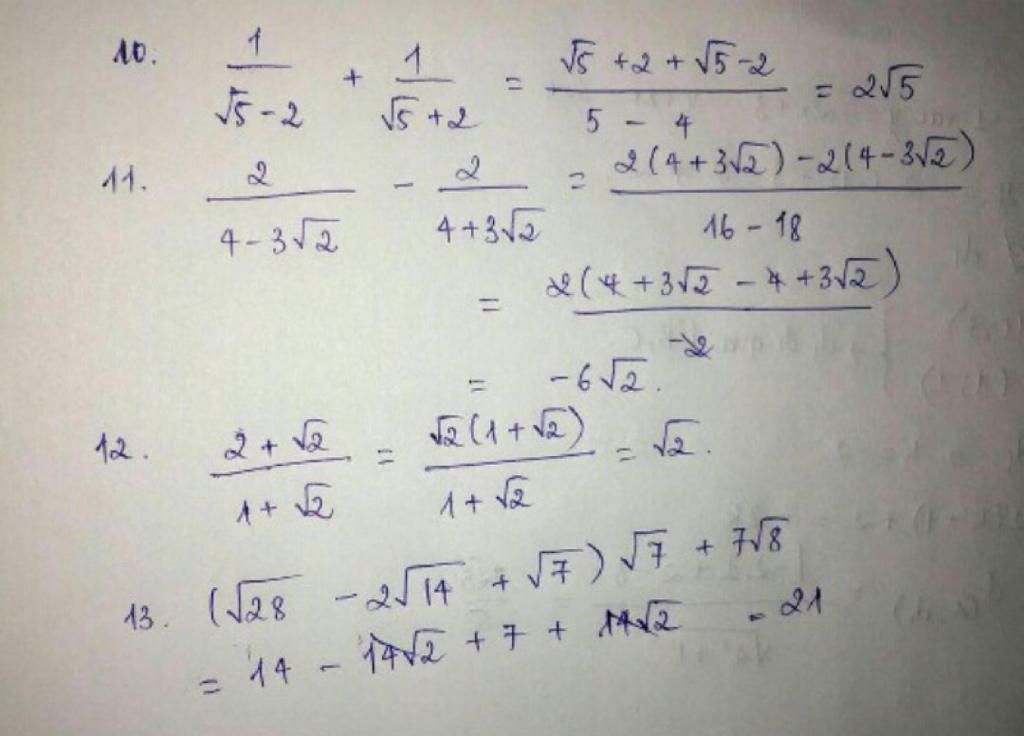 10. 1/(√5 - 2) + 1/(√5 + 2) = (√5 + 2 + √5 - 2)/(5 - 4) = 2√5
11. 2/(4 - 3√2) - 2/(4 + 3√2) = (2(4 + 3√2) - 2(4 - 3√2))/(16 - 18)
= 2(4 + 3√2 - 4 + 3√2)/(-2)
= -6√2.
12. (2 + √2)/(1 + √2) = √2(1 + √2)/(1 + √2) = √2.
13. (√28 - 2√14 + √7)√7 + 7√8
= 14 - 14√2 + 7 + 14√2 = 21